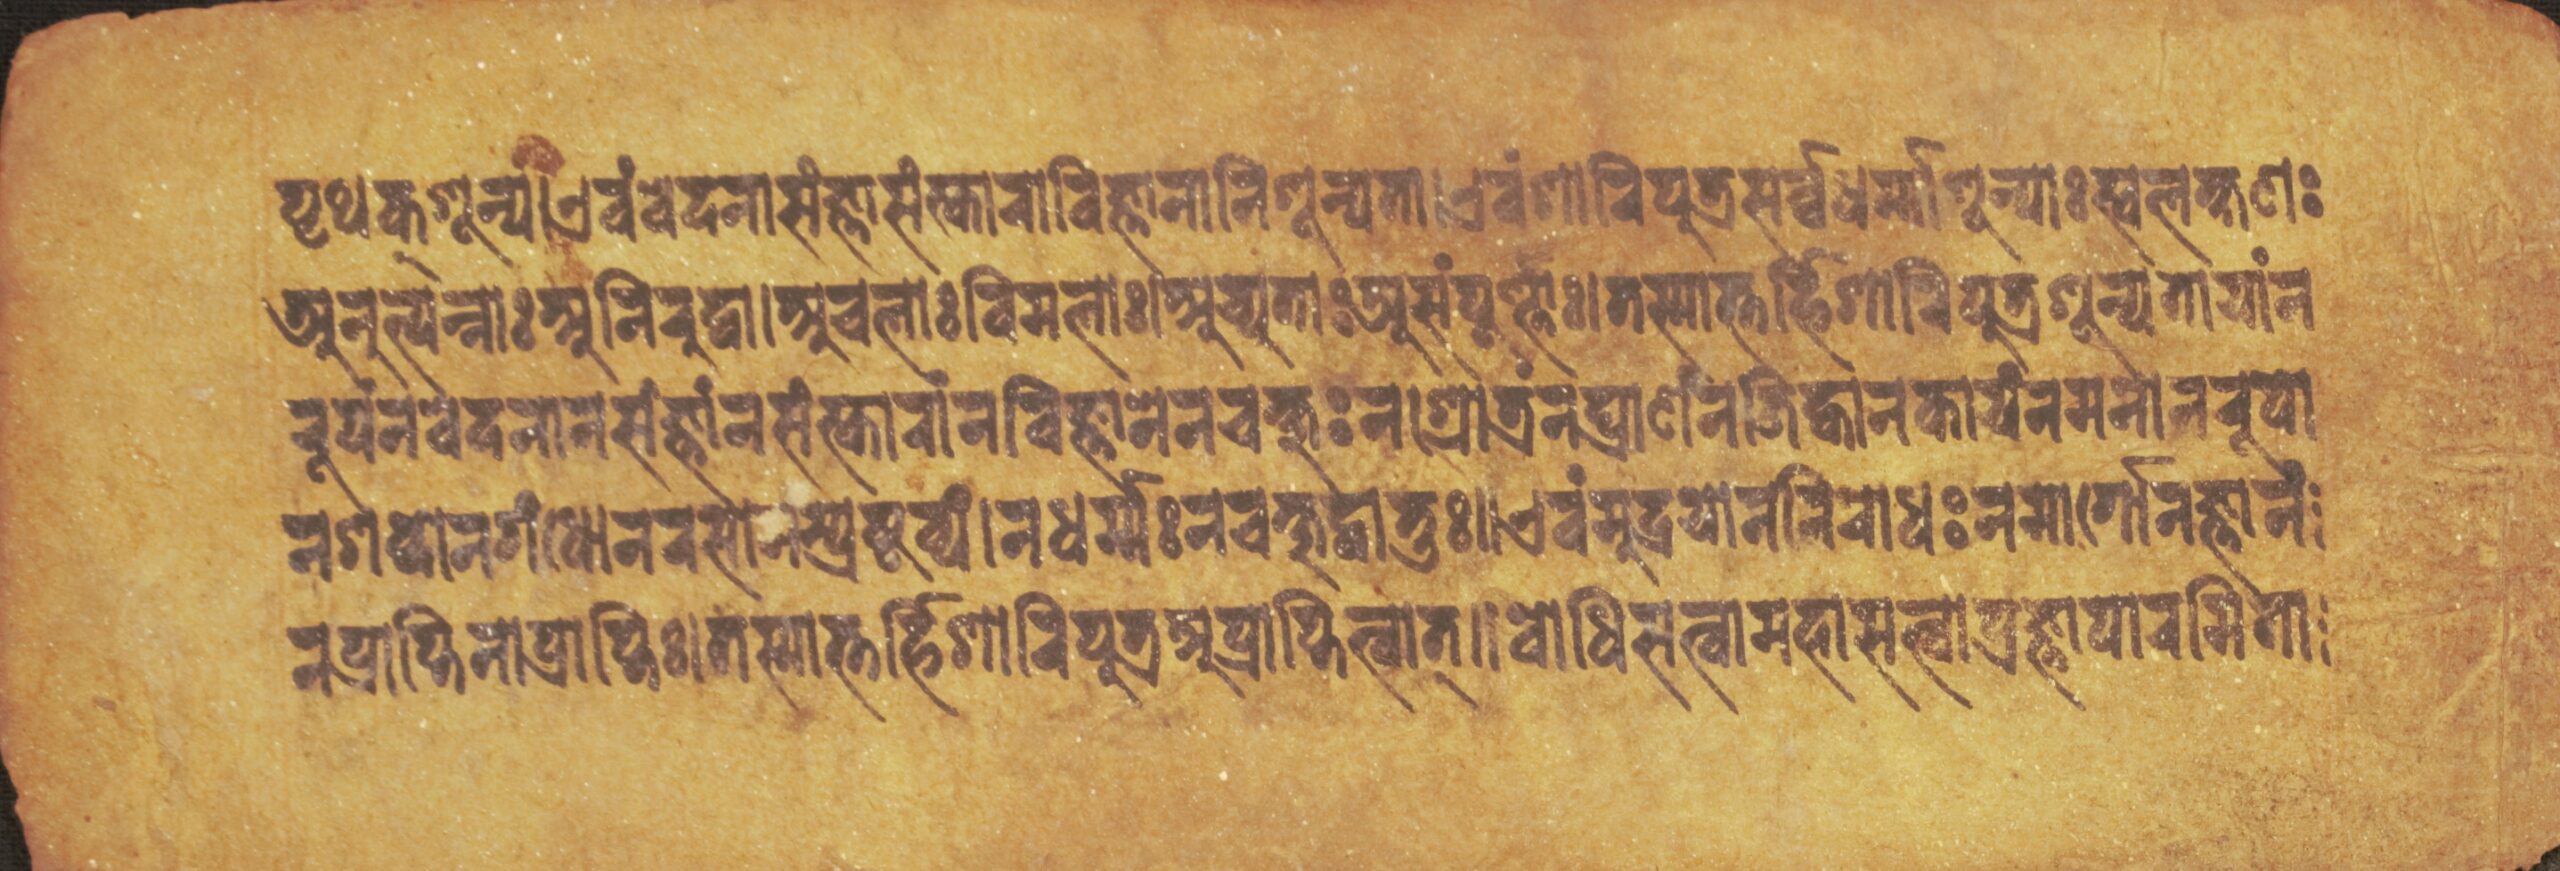 पृथक्शून्यं।एवंवेदनासंज्ञासंस्काराविज्ञानानिशून्यता।एवंशारिपुत्रसर्व्वधर्म्माशून्याःस्वलक्षणः
अनुत्पन्नाःअनिरुद्धा।अचलाःविमलाः।अच्युताःअसंपूर्ण्णाः।तस्मात्तर्हिशारिपुत्रशून्यतायांन
रूपंनवेदनानसंज्ञांनसंस्कारांनविज्ञानेनचक्षुःनश्रोत्रंनघ्राणंनजिह्वानकायंनमनोनरूपा
नशब्दोनगंधोनरसोनस्प्रष्टव्यं।नधर्म्माःनचक्षुद्धातुः॥एवंमुद्रयोननिरोधःनमार्गोनज्ञानंः
नप्राप्तिनाप्राप्तिः।तस्मात्तर्हिशारिपुत्रअप्राप्तित्वात्॥बोधिसत्वामहासत्वाप्रज्ञापारमिताः